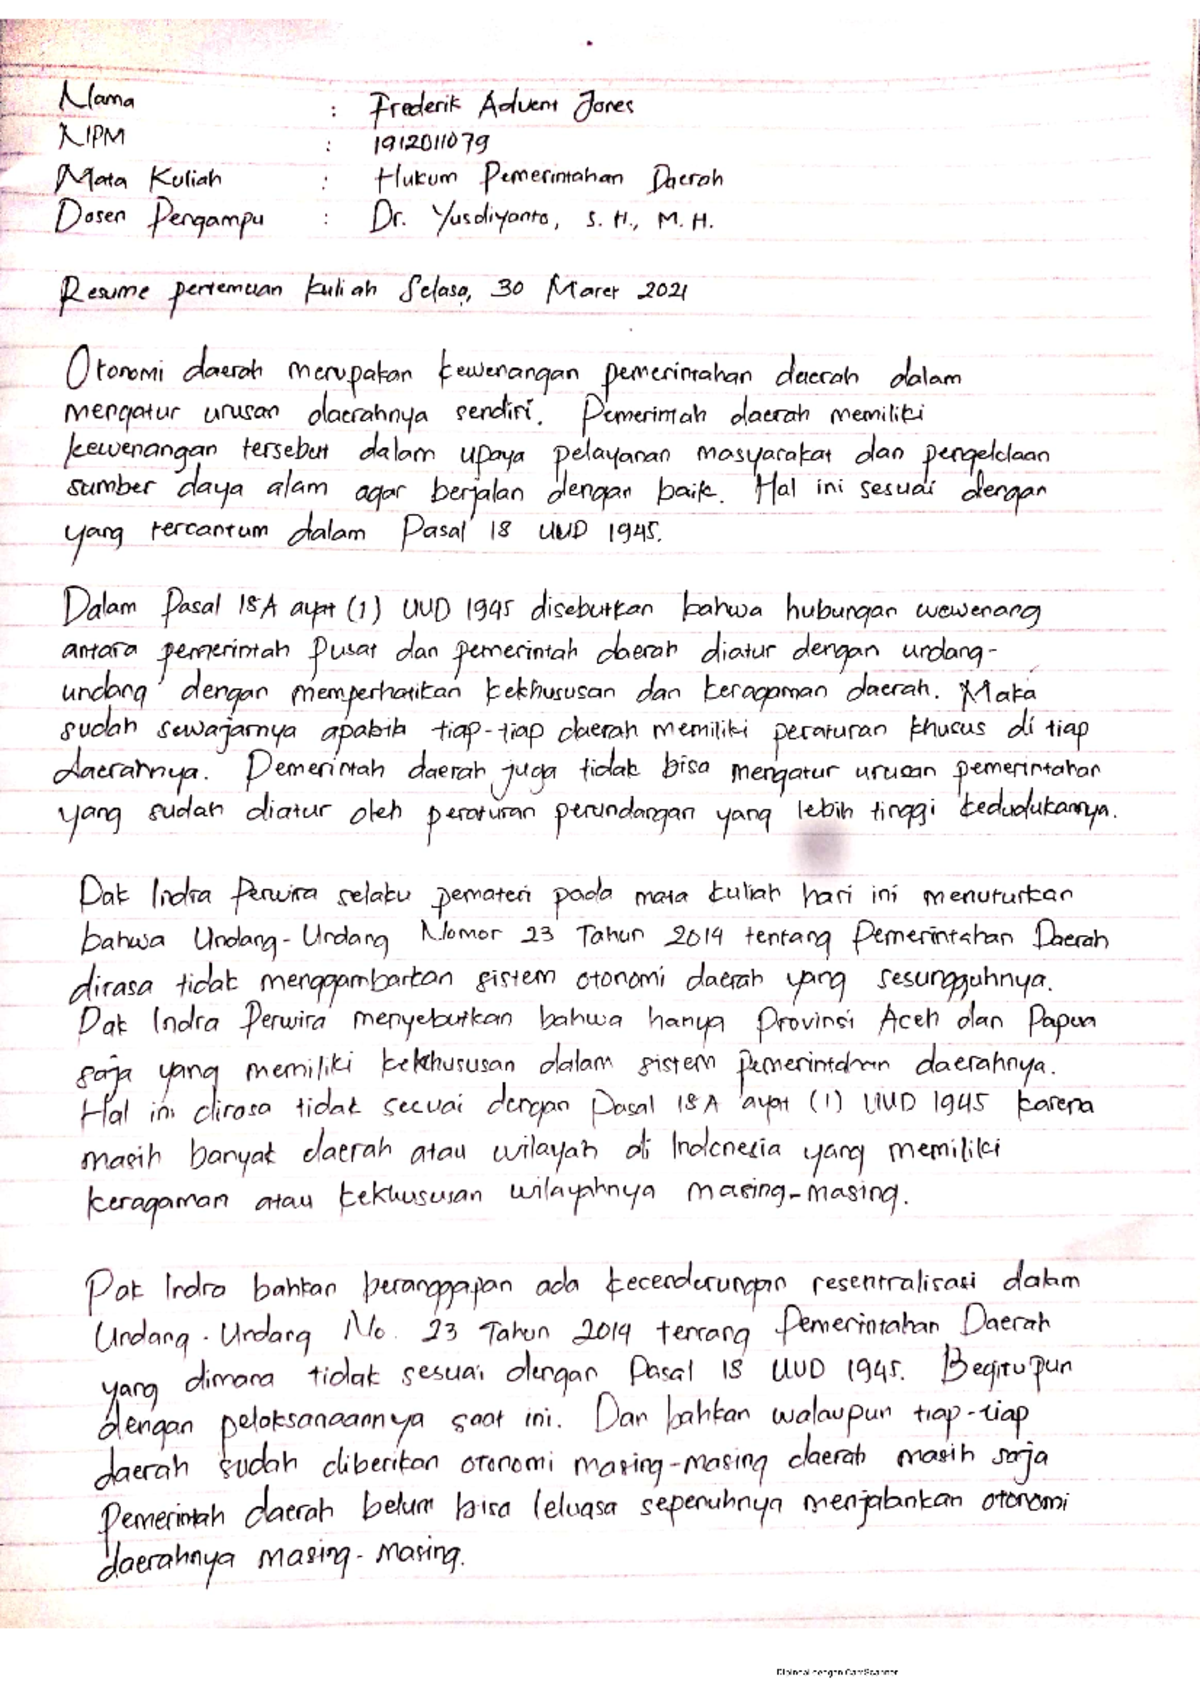 Nama : Frederik Advent Jones
NPM : 1912011079
Mata Kuliah : Hukum Pemerintahan Daerah
Dosen Pengampu : Dr. Yusdiyanto, S. H., M. H.
Resume pertemuan kuliah Selasa, 30 Maret 2021
Otonomi daerah merupakan kewenangan pemerintahan daerah dalam
mengatur urusan daerahnya sendiri. Pemerintah daerah memiliki
kewenangan tersebut dalam upaya pelayanan masyarakat dan pengelolaan
sumber daya alam agar berjalan dengan baik. Hal ini sesuai dengan
yang tercantum dalam Pasal 18 UUD 1945.
Dalam Pasal 18A ayat (1) UUD 1945 disebutkan bahwa hubungan wewenang
antara pemerintah Pusat dan pemerintah daerah diatur dengan undang-
undang dengan memperhatikan kekhususan dan keragaman daerah. Maka
sudah sewajarnya apabila tiap-tiap daerah memiliki peraturan khusus di tiap
daerahnya. Pemerintah daerah juga tidak bisa mengatur urusan pemerintahan
yang sudah diatur oleh peraturan perundangan yang lebih tinggi kedudukannya.
Pak Indra Perwira selaku pemateri pada mata kuliah hari ini menuturkan
bahwa Undang-Undang Nomor 23 Tahun 2014 tentang Pemerintahan Daerah
dirasa tidak menggambarkan sistem otonomi daerah yang sesungguhnya.
Pak Indra Perwira menyebutkan bahwa hanya Provinsi Aceh dan Papua
saja yang memiliki kekhususan dalam sistem pemerintahan daerahnya.
Hal ini dirasa tidak sesuai dengan Pasal 18A ayat (1) UUD 1945 karena
masih banyak daerah atau wilayah di Indonesia yang memiliki
keragaman atau kekhususan wilayahnya masing-masing.
Pak Indra bahkan beranggapan ada kecenderungan resentralisasi dalam
Undang-Undang No. 23 Tahun 2014 tentang Pemerintahan Daerah
yang dimana tidak sesuai dengan Pasal 18 UUD 1945. Begitupun
dengan pelaksanaannya saat ini. Dan bahkan walaupun tiap-tiap
daerah sudah diberikan otonomi masing-masing daerah masih saja
Pemerintah daerah belum bisa leluasa sepenuhnya menjalankan otonomi
daerahnya masing-masing.
Dipindai dengan CamScanner